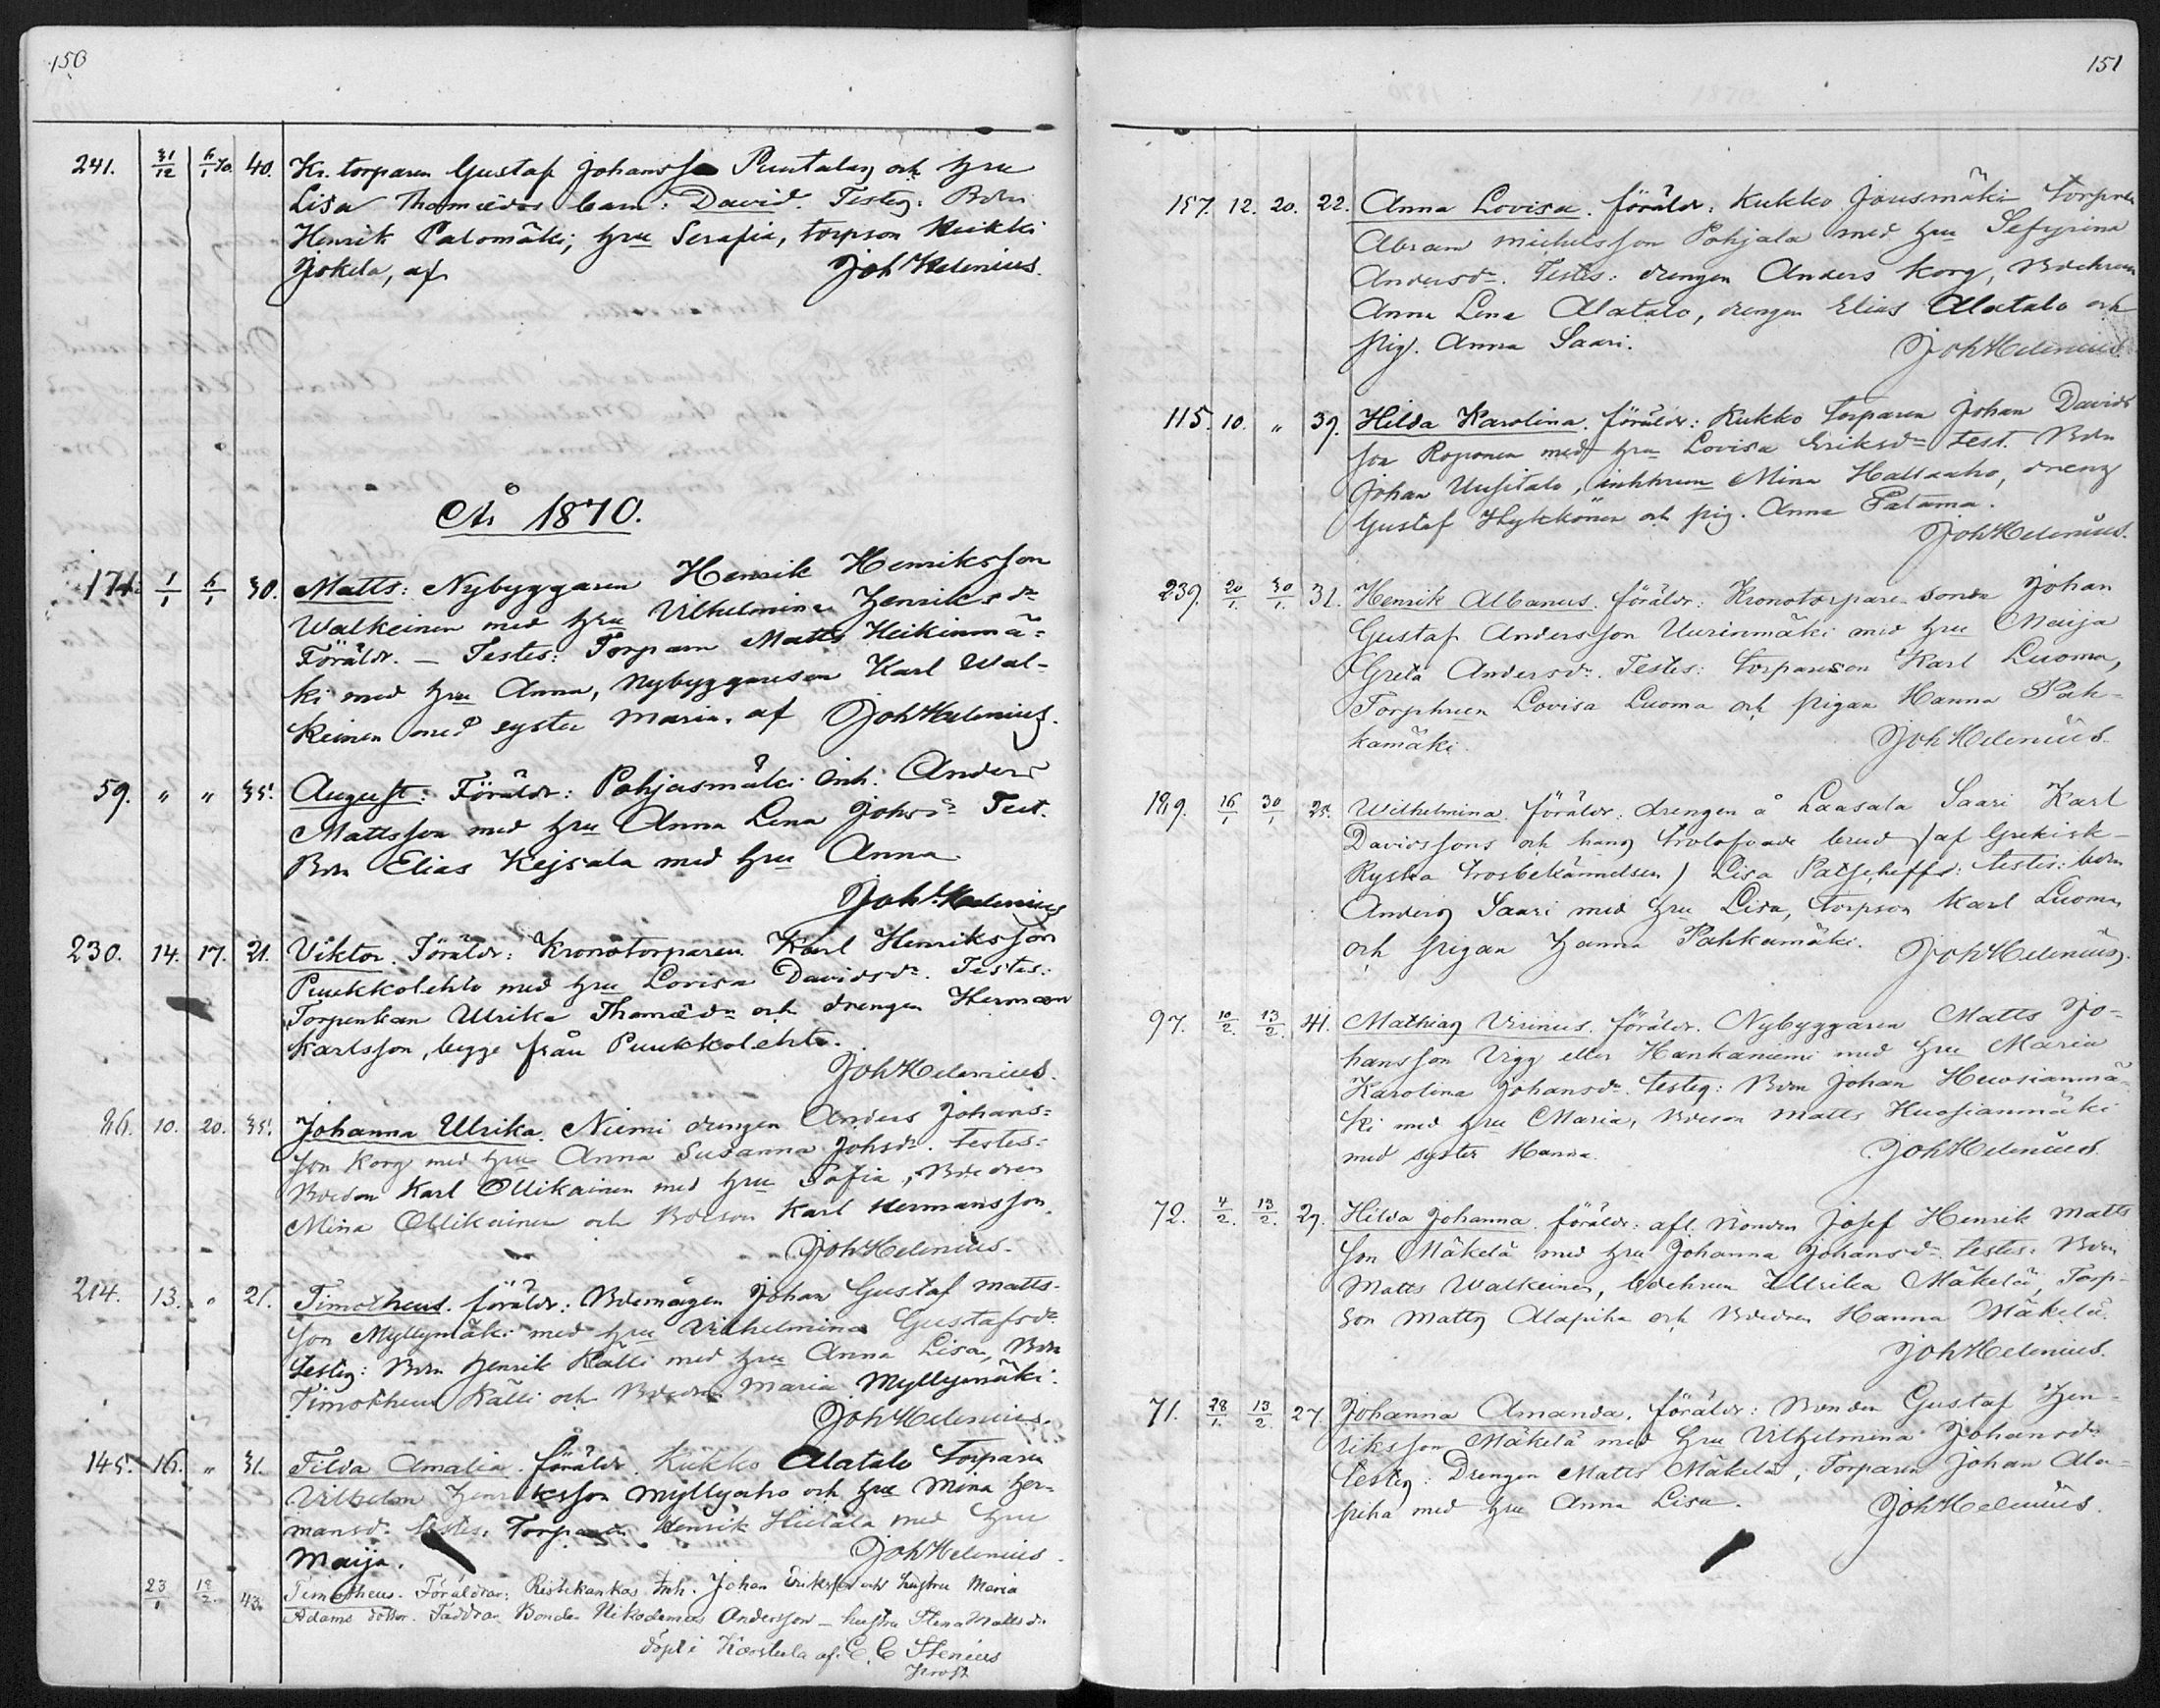 150
241. 31/12 6/1 70. 40. Kr. torparen Gustaf Johansson Puntalas och hru
Lisa Thomædrs barn: David. Testes: Bdn
Henrik Palomäki, hru Serafia, torpson Heikki
Jokela, af Joh Helenius.
År 1870.
171. 1/1 6/1 30. Matts: Nybyggaren Henrik Henriksson
Walkeinen med hru Vilhelmina Henriksdr
Föräldr. — Testes: Torparn Matts Heikinmä-
ki med hru Anna, Nybyggareson Karl Wal-
keinen med syster Maria. af Joh Helenius.
59. " " 35. August: Föräldr: Pohjasmäki inh. Anders
Mattsson med hru Anna Lena Johsdr Test.
Bdn Elias Kejsala med hru Anna
Joh. Helenius
230. 14. 17. 21. Viktor. Föräldr: Kronotorparen Karl Henriksson
Puukkolehto med hru Lovisa Davidsdr. Testes:
Torpenkan Ulrika Thomædr och drengen Herman
Karlsson, begge från Puukkolehto.
Joh Helenius.
86. 10. 20. 35. Johanna Ulrika. Niemi drengen Anders Johans-
son Korg med hru Anna Susanna Johsdr. testes:
Bdeson Karl Ollikainen med hru Sofia, Bdedren
Mina Ollikainen och Bdeson Karl Hermansson.
Joh Helenius.
214. 13. " 21. Timotheus. föräldr: Bdemågen Johan Gustaf Matts-
son Myllymäki med hru Vilhelmina Gustafsdr
testes: Bdn Henrik Källi med hru Anna Lisa, Bdn
Timotheus Källi och Bdedr. Maria Myllymäki.
Joh Helenius.
145. 16. " 31. Tilda Amalia. föräldr. Kukko Alatalo torparen
Vilhelm Henriksson Myllyaho och hru Mina Her-
mansdr. testes. Torparen Henrik Hietala med hru
Maija. Joh Helenius.
23/1 18/2. 43. Timotheus. Föräldrar: Ristikankas Inh. Johan Eriksson och hustru Maria
Adams dotter. Faddrar Bonden Nikodemus Andersson — hustru Stena Mattsdr.
döpt i Karstula af C. C Stenius
Prost
151
157. 12. 20. 22. Anna Lovisa. föräldr: Kukko Jousmäki torparen
Abram Michelsson Pohjala med hru Sefyrina
Andersdr. Testes: drengen Anders Korg, Bdehrun
Anna Lena Alatalo, drengen Elias Alatalo och
pig. Anna Saari. Joh Helenius.
115. 10. " 39. Hilda Karolina. föräldr: Kukko torparen Johan Davids
son Roponen med hru Lovisa Eriksdr test. Bdn
Johan Uusitalo, inhhrun Mina Hallaaho, dreng
Gustaf Hykkönen och pig. Anna Patama.
Joh Helenius.
239. 20/1. 30/1. 31. Henrik Albanus. föräldr: Kronotorpare sonen Johan
Gustaf Andersson Uurinmäki med hru Maija
Greta Andersdr. Testes: torpareson Karl Luoma,
Torphrun Lovisa Luoma och pigan Hanna Pah-
kamäki. Joh Helenius.
189. 16/1 30/1 25. Wilhelmina. föräldr: drengen å Laasala Saari Karl
Davidssons och hans trolofvade brud (af Grekisk-
Ryska trosbekännelsen) Lisa Patscheffs: testes: bdn
Anders Saari med hru Lisa, torpson Karl Luoma
och pigan Hanna Pahkamäki. Joh Helenius.
97. 10/2. 13/2. 41. Mathias Virinus. föräldr. Nybyggaren Matts Jo-
hansson Vigg eller Hankaniemi med hru Maria
Karolina Johansdr. testes: Bdn Johan Huosianmä-
ki med hru Maria, Bdeson Matts Huosianmäki
med syster Hanna. Joh Helenius.
72. 4/2. 13/2. 29. Hilda Johanna. föräldr: afl. Bonden Josef Henrik Matts
son Mäkelä med hru Johanna Johansdr. testes: Bdn
Matts Walkeinen, bdehrun Ulrika Mäkelä, Torp-
son Matts Alapiha och Bdedren Hanna Mäkelä.
Joh Helenius.
71. 28/1. 13/2. 27. Johanna Amanda. föräldr: Bonden Gustaf Hen-
riksson Mäkelä med hru Vilhelmina Johansdr.
testes: Drengen Matts Mäkelä, Torparen Johan Ala-
piha med hru Anna Lisa. Joh Helenius.